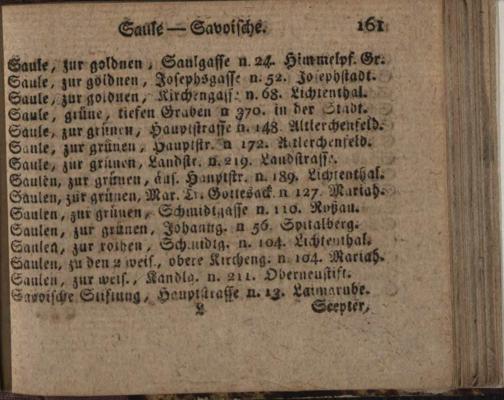 Saule — Savoische. 161
Saule, zur goldnen, Saulgasse n. 24. Himmelpf. Gr.
Saule, zur goldnen, Josephsgasse n. 52. Josephstadt.
Saule, zur goldnen, Kirchengass. n. 68. Lichtenthal.
Saule, grüne, tiefen Graben n 370. in der Stadt.
Saule, zur grünen, Hauptstrasse n. 148. Altlerchenfeld.
Saule, zur grünen, Hauptstr. n 172. Altlerchenfeld.
Saule, zur grünen, Landstr. n. 219. Landstrasse.
Saulen, zur grünen, äus. Hauptstr. n. 189. Lichtenthal.
Saulen, zur grünen, Mar. Tr. Gottesack. n 127. Mariah.
Saulen, zur grünen, Schmidtgasse n. 110. Roßau.
Saulen, zur grünen, Johanng. n 56. Spitalberg.
Saulen, zur rothen, Schmidtg. n. 104. Lichtenthal.
Saulen, zu den 2 weis., obere Kircheng. n 104. Mariah.
Saulen, zur weis., Kandlg. n. 211. Oberneustift.
Savoische Stiftung, Hauptstrasse n. 13. Laimgrube.
L Scepter,